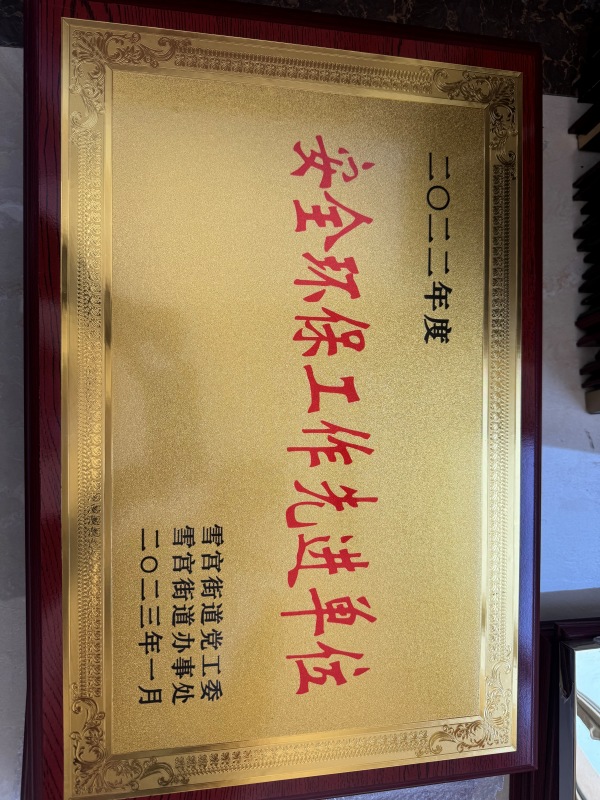 二〇二二年度
安全环保工作先进单位
雪宫街道党工委
雪宫街道办事处
二〇二三年一月